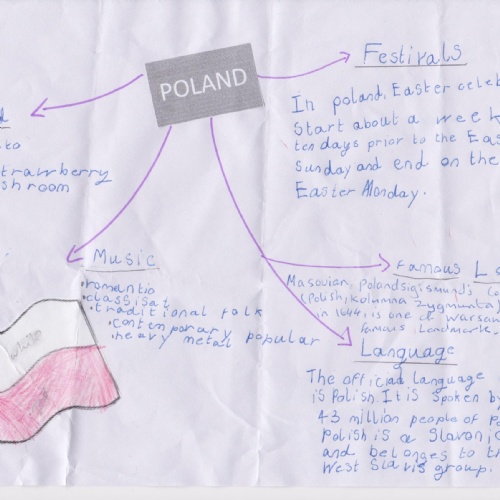 POLAND
Festivals
In poland, Easter celeb
Start about a week
ten days prior to the Eas
Sunday and end on the
Easter Monday.
d
to
trawberry
shroom
Music
romantic
classisat
traditional folk
contemporary
heavy metal popular
white
Famous L
Masovian, Poland sigismund's (
(Polish, kolumna Zygmunta)
in 1644, is one of Warsaw
famous landmark.
Language
The official language
is Polish. It is spoken by
43 million people of Po
Polish is a Slavonic
and belongs to th
West Slavis group.